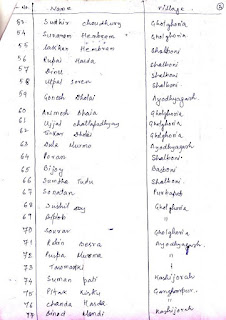 No. Name Village
53. Sudhir Choudhury Gholghoria
54 Sunaram Hembrem Gholghoria
55 Lakhan Hembrem Shalboni
56 Rupai Hasda Shalboni
57 Dinu Shalboni
58 Utpal Soren Shalboni
59 Gonesh Dhalai Ayodhyagarh
60 Animesh Ghalghoria
61 Ujjal Chattapadhyay Gholghoria
62 Tinkar Dhalai Ayodhyagarh
63 Murmu Ayodhyagarh
64 Poran Shalboni
65 Bijoy Basboni
66 Tudu Shalboni
67 Sonatan Purkapob
68 Sushil Roy Gholghoria
69 Biplob "
70 Sourav Gholghoria
71 Robin Besra Ayodhyagarh
72 Puspa Murmu "
73 "
74 Suman Pati Kashijorah
75 Kisku Gangharpur
76 Chanda Hasda "
77 Binod Mandi Kashijorah